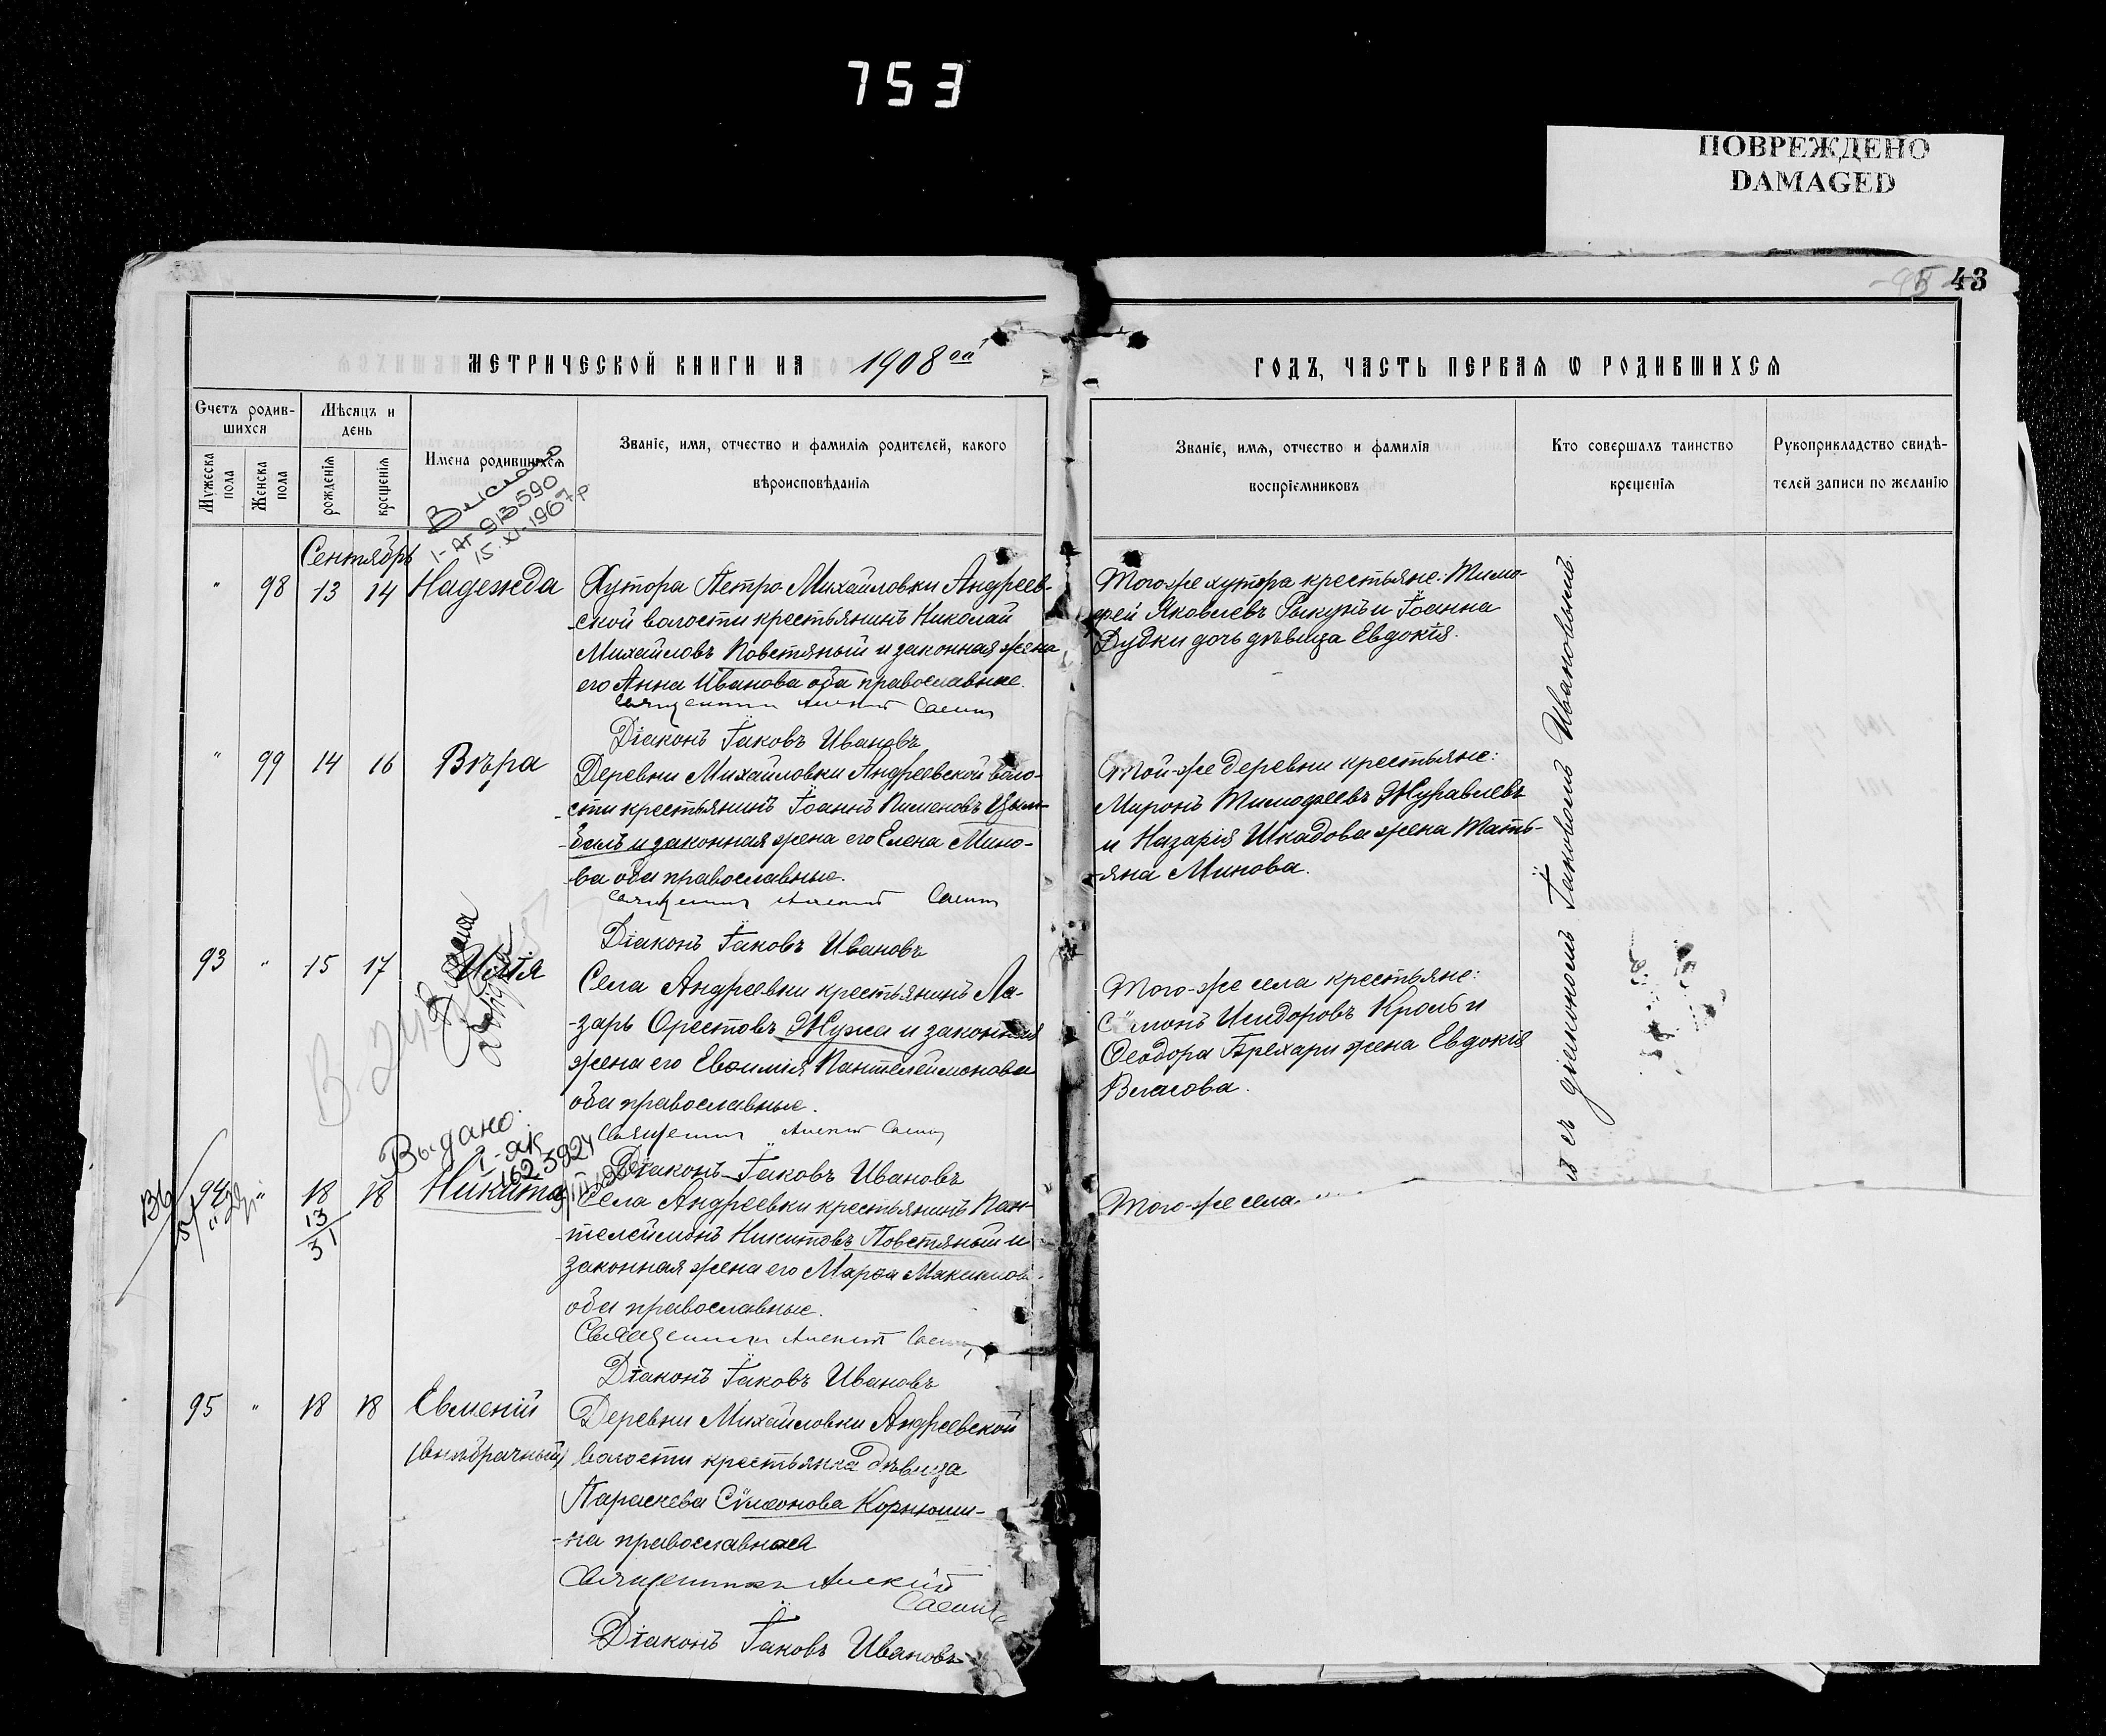 753
ПОВРЕЖДЕНО
DAMAGED
43
МЕТРИЧЕСКОЙ КНИГИ НА 1908 ой
ГОДЪ, ЧАСТЬ ПЕРВАЯ Ѡ РОДИВШИХСЯ
Счетъ родив-
шихся
Мужеска пола
Женска пола
Мѣсяцъ и
день
рожденія
крещенія
Имена родившихся
Званіе, имя, отчество и фамилія родителей, какого
вѣроисповѣданія
Званіе, имя, отчество и фамилія
воспріемниковъ
Кто совершалъ таинство
крещенія
Рукоприкладство свидѣ-
телей записи по желанію
913590
15.XI-1967р
Сентябрь
" 98 13 14 Надежда
Хутора Петро-Михайловки Андреев-
ской волости крестьянинъ Николай
Михайловъ Повстяный и законная жена
его Анна Иванова оба православные.
Діаконъ Іаковъ Ивановъ
Того-же хутора крестьяне: Тимо-
фей Яковлевъ и Іоанна
Дудки дочь дѣвица Евдокія.
" 99 14 16 Вѣра
Деревни Михайловки Андреевской воло-
сти крестьянинъ Іоаннъ Пименовъ Цым-
балъ и законная жена его Елена Мино-
ва оба православные.
Діаконъ Іаковъ Ивановъ
Той-же деревни крестьяне:
Миронъ Тимофеевъ Журавлевъ
и Назарія Шкадова жена Тать-
яна Минова.
93 " 15 17 Илія
Села Андреевки крестьянинъ Ла-
-зарь Орестовъ Жужа и законная
жена его Евѳимія Пантелеймонова
оба православные.
Діаконъ Іаковъ Ивановъ
Того-же села крестьяне:
Исидоровъ Кроль и
Ѳеодора Брехари жена Евдокія
Власова.
Выдано
94 " 18 18 Никита
13
31
Села Андреевки крестьянинъ Пан-
-телеймонъ Никитовъ Повстяный и
законная жена его Марѳа
оба православные.
Священникъ
Діаконъ Іаковъ Ивановъ
Того-же села
95 " 18 18 Евменій
(внѣбрачный)
Деревни Михайловки Андреевской
волости крестьянка дѣвица
Параскева Сѵмеонова Корнюши-
-на православная
Священникъ Алексій
Діаконъ Іаковъ Ивановъ
съ діакономъ Іаковомъ Ивановымъ.